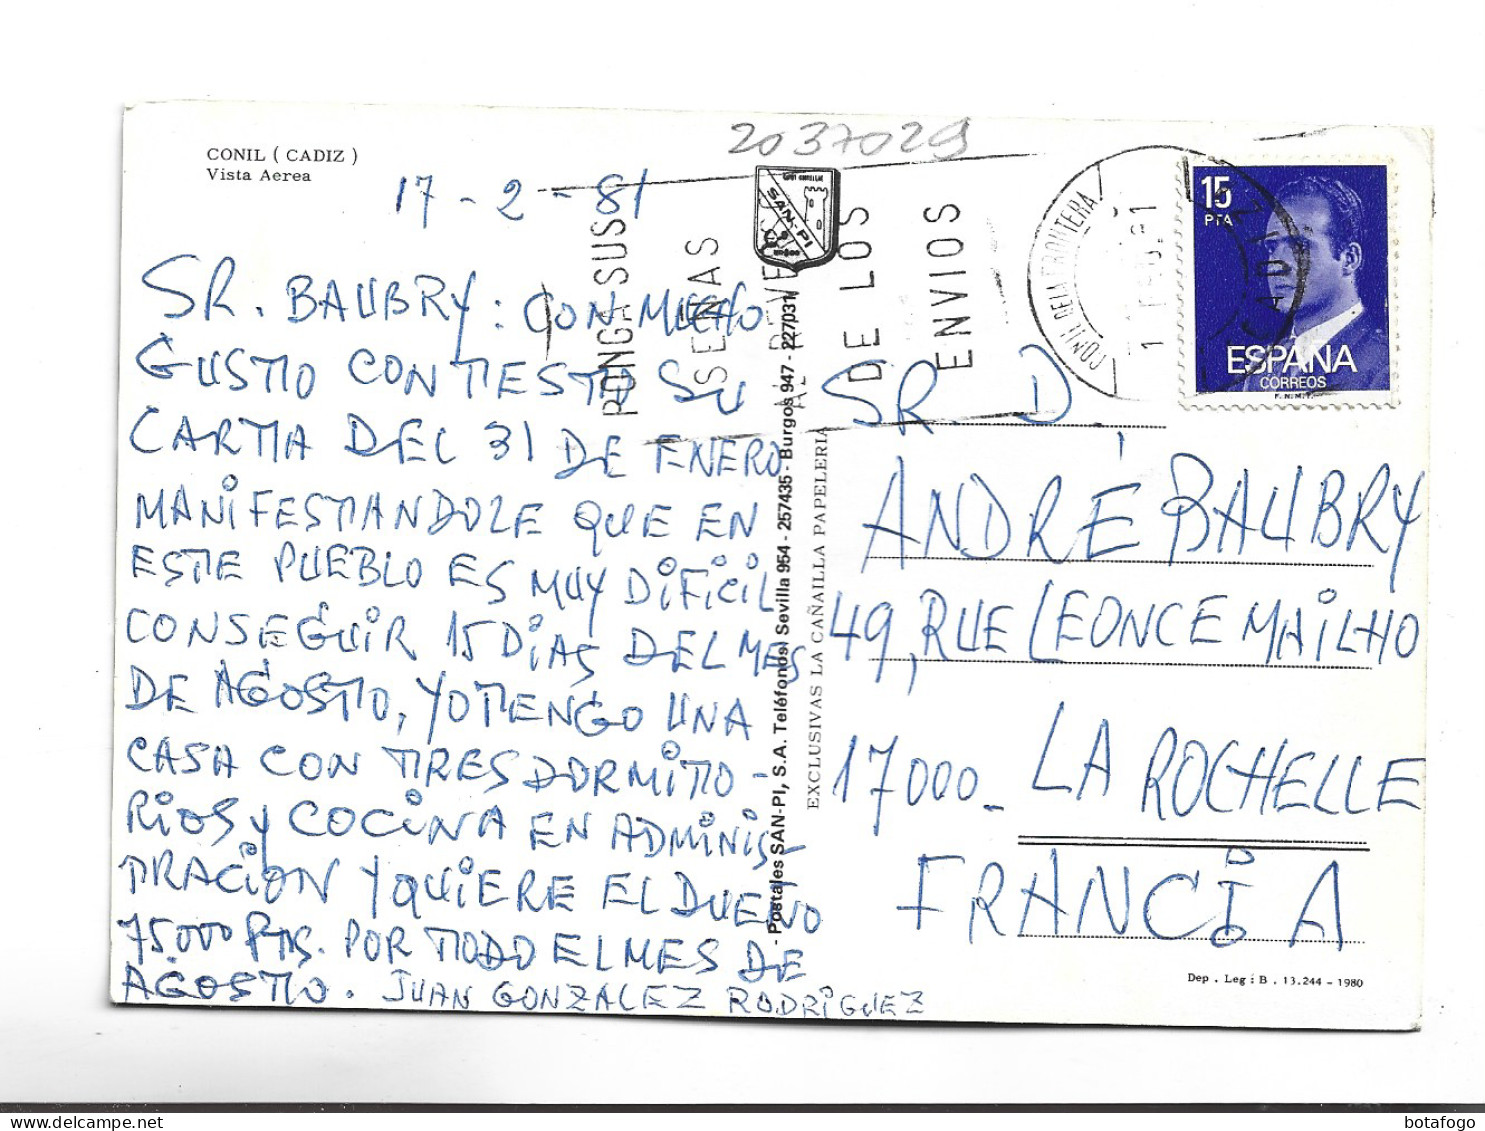 CONIL ( CADIZ )
Vista Aerea
2037029
17 - 2 - 81
SR. BAUBRY: CON MUCHO
GUSTO CONTESTO SU
CARTA DEL 31 DE ENERO
MANIFESTANDOLE QUE EN
ESTE PUEBLO ES MUY DIFICIL
CONSEGUIR 15 DIAS DEL MES
DE AGOSTO, YO TENGO UNA
CASA CON TRES DORMITO-
RIOS Y COCINA EN ADMINIS-
TRACION Y QUIERE EL DUEÑO
75000 Pts. POR TODO EL MES DE
AGOSTO. JUAN GONZALEZ RODRIGUEZ
PONGA SUS
SEÑAS
AL REVE
DE LOS
ENVIOS
SAN-PI
- Postales SAN-PI, S.A. Teléfonos: Sevilla 954 - 257435 - Burgos 947 - 227031
EXCLUSIVAS LA CAÑAILLA PAPELERIA
CONIL DE LA FRONTERA
CADIZ
15
PTA
ESPAÑA
CORREOS
F.N.M.T.
SR. D.
ANDRÉ BAUBRY
49, RUE LEONCE MAILHO
17000- LA ROCHELLE
FRANCIA
Dep. Leg: B. 13.244 - 1980
botafogo